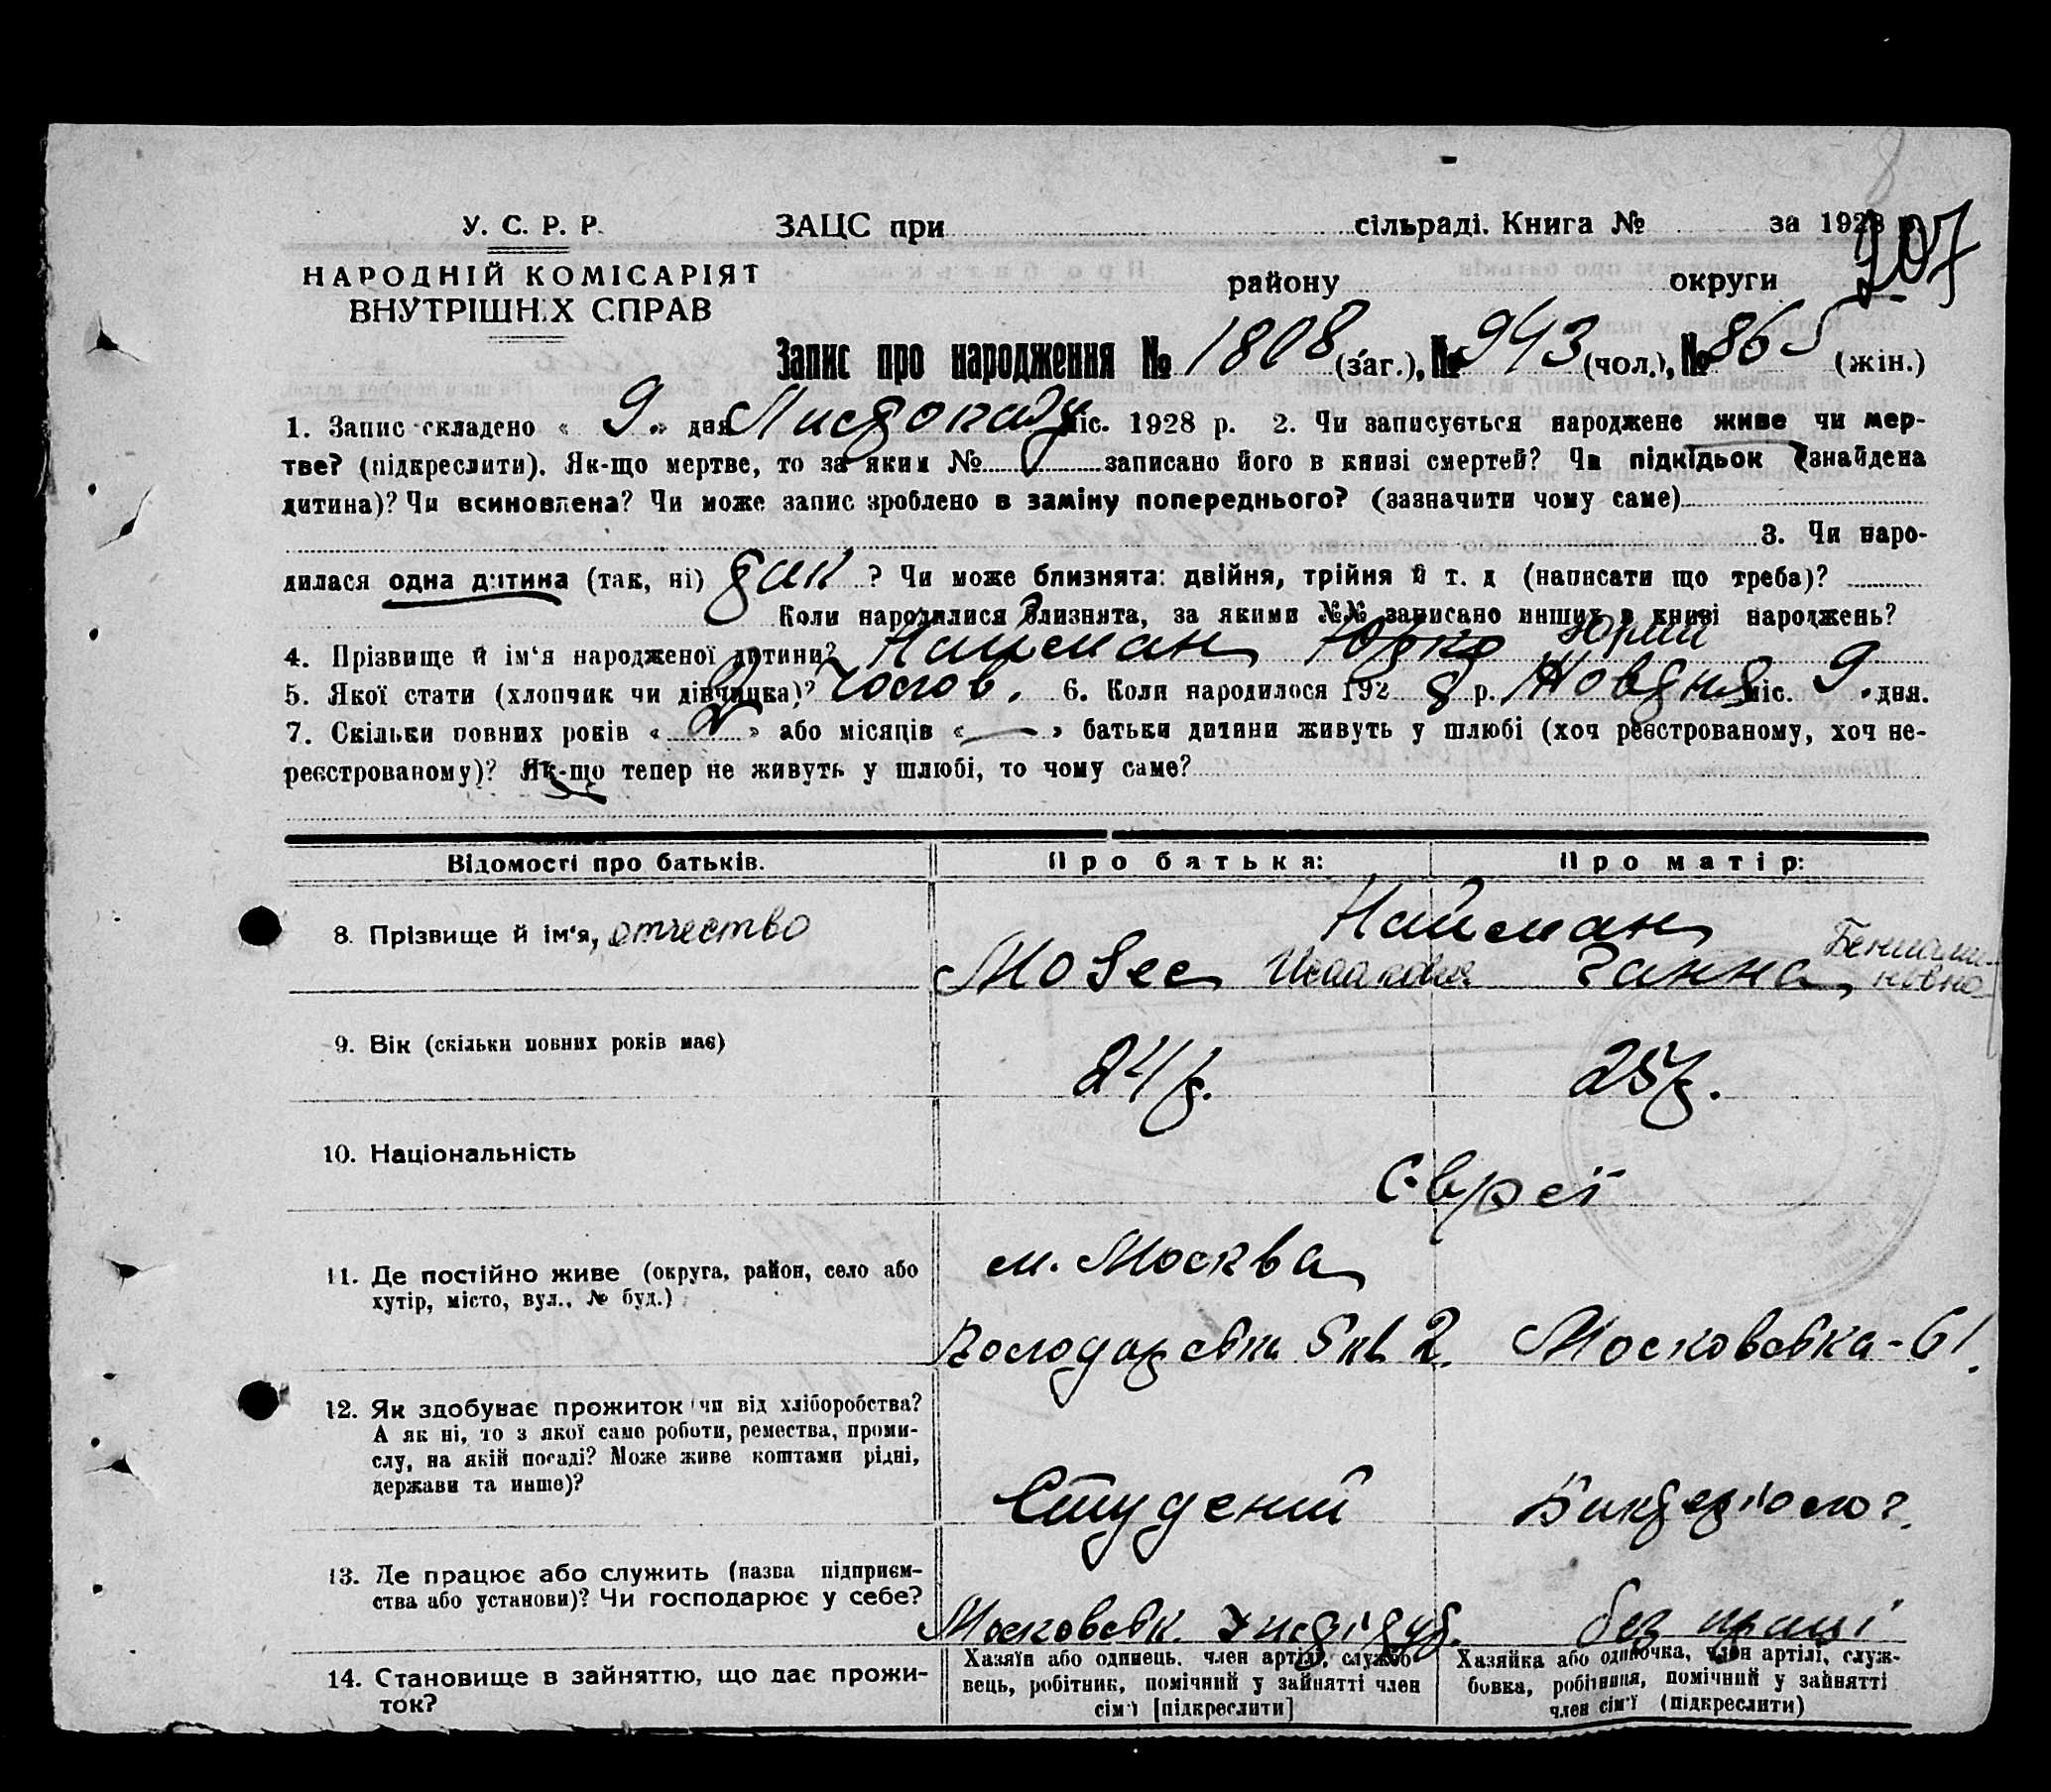 У. С. Р. Р.
НАРОДНІЙ КОМІСАРІЯТ
ВНУТРІШНІХ СПРАВ
ЗАЦС при сільраді. Книга № за 1928
207
району округи
Запис про народження № 1808 (заг.), № 943 (чол.), № 865 (жін.)
1. Запис складено « 9 » дня Листопаду міс. 1928 р. 2. Чи записується народжене живе чи мер-
тве? (підкреслити). Як-що мертве, то за яким № записано його в книзі смертей? Чи підкідьок (знайдена
дитина)? Чи всиновлена? Чи може запис зроблено в заміну попереднього? (зазначити чому саме)
3. Чи наро-
дилася одна дитина (так, ні) так ? Чи може близнята: двійня, трійня й т. д (написати що треба)?
Коли народилися близнята, за якими №№ записано инших в книзі народжень?
4. Прізвище й ім'я народженої дитини? Найман Юрко Юрий
5. Якої стати (хлопчик чи дівчинка)? чолов. 6. Коли народилося 1928 р. Жовтня міс. 9 дня.
7. Скільки повних років « 2 » або місяців « — » батьки дитини живуть у шлюбі (хоч реєстрованому, хоч не-
реєстрованому)? Як-що тепер не живуть у шлюбі, то чому саме?
Відомості про батьків. Про батька: Про матір:
8. Прізвище й ім'я, отчество
Найман
Мойсе Исаакович Ганна Бениами-
новна
9. Вік (скільки повних років має)
24 р. 25 р.
10. Національність
Євреї
11. Де постійно живе (округа, район, село або
хутір, місто, вул., № буд.)
м. Москва
Володарськ 5 кв 2. Московська-61.
12. Як здобуває прожиток чи від хліборобства?
А як ні, то з якої само роботи, ремества, проми-
слу, на якій посаді? Може живе коштами рідні,
держави та инше)?
Студент Бактеріолог.
13. Де працює або служить (назва підприєм-
ства або установи)? Чи господарює у себе?
Московськ. Інстітут. без праці
14. Становище в зайняттю, що дає прожи-
ток?
Хазяїн або одинець, член артілі, службо-
вець, робітник, помічний у зайнятті член
сім'ї [підкреслити]
Хазяйка або одиночка, член артілі, служ-
бовка, робітниця, помічний у зайнятті
член сім'ї (підкреслити)